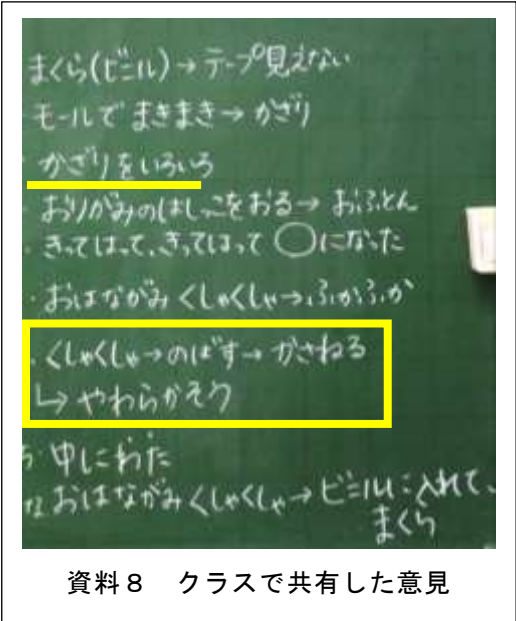 まくら(ビニル)→テープ見えない
・モールでまきまき→かざり
・かざりをいろいろ
・おりがみのはしっこをおる→おふとん
・きってはって、きってはって◯になった
・おはながみくしゃくしゃ→ふかふか
・くしゃくしゃ→のばす→かさねる
↳やわらかそう
・中にわた
おはながみくしゃくしゃ→ビニルに入れて、
まくら
資料8 クラスで共有した意見